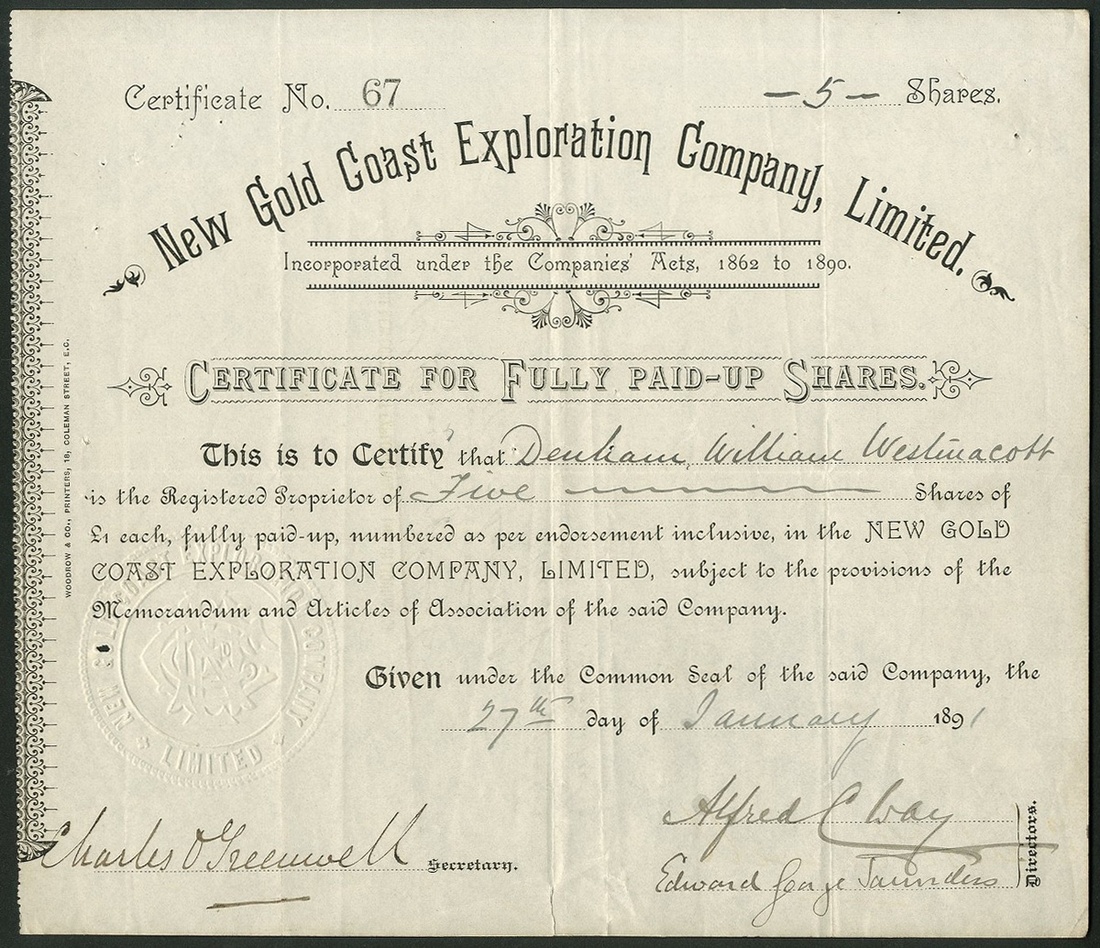 Certificate No. 67
— 5 — Shares.
New Gold Coast Exploration Company, Limited.
Incorporated under the Companies' Acts, 1862 to 1890.
Certificate for Fully paid-up Shares.
This is to Certify that Denham William Westmacott
is the Registered Proprietor of Five Shares of
£1 each, fully paid-up, numbered as per endorsement inclusive, in the NEW GOLD
COAST EXPLORATION COMPANY, LIMITED, subject to the provisions of the
Memorandum and Articles of Association of the said Company.
Given under the Common Seal of the said Company, the
27th day of January 1891
Alfred C Way
Edward George Saunders
Directors.
Charles O Greenwell Secretary.
WOODROW & CO., PRINTERS, 18, COLEMAN STREET, E.C.
NEW GOLD COAST EXPLORATION COMPANY
LIMITED